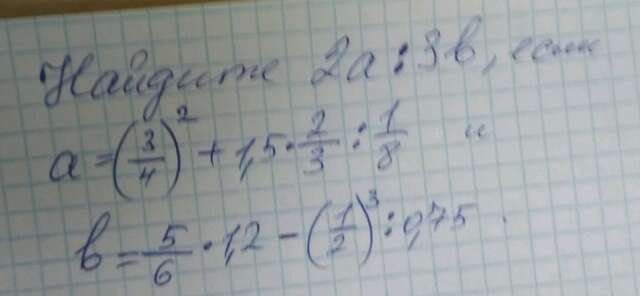 Найдите 2a : 3b, если
a = (3/4)² + 1,5 · 2/3 : 1/8 и
b = 5/6 · 1,2 − (1/2)³ : 0,75.